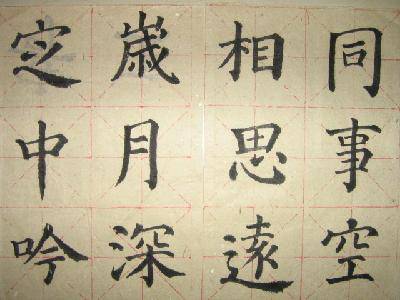 同事空
相思遠
歲月深
定中吟